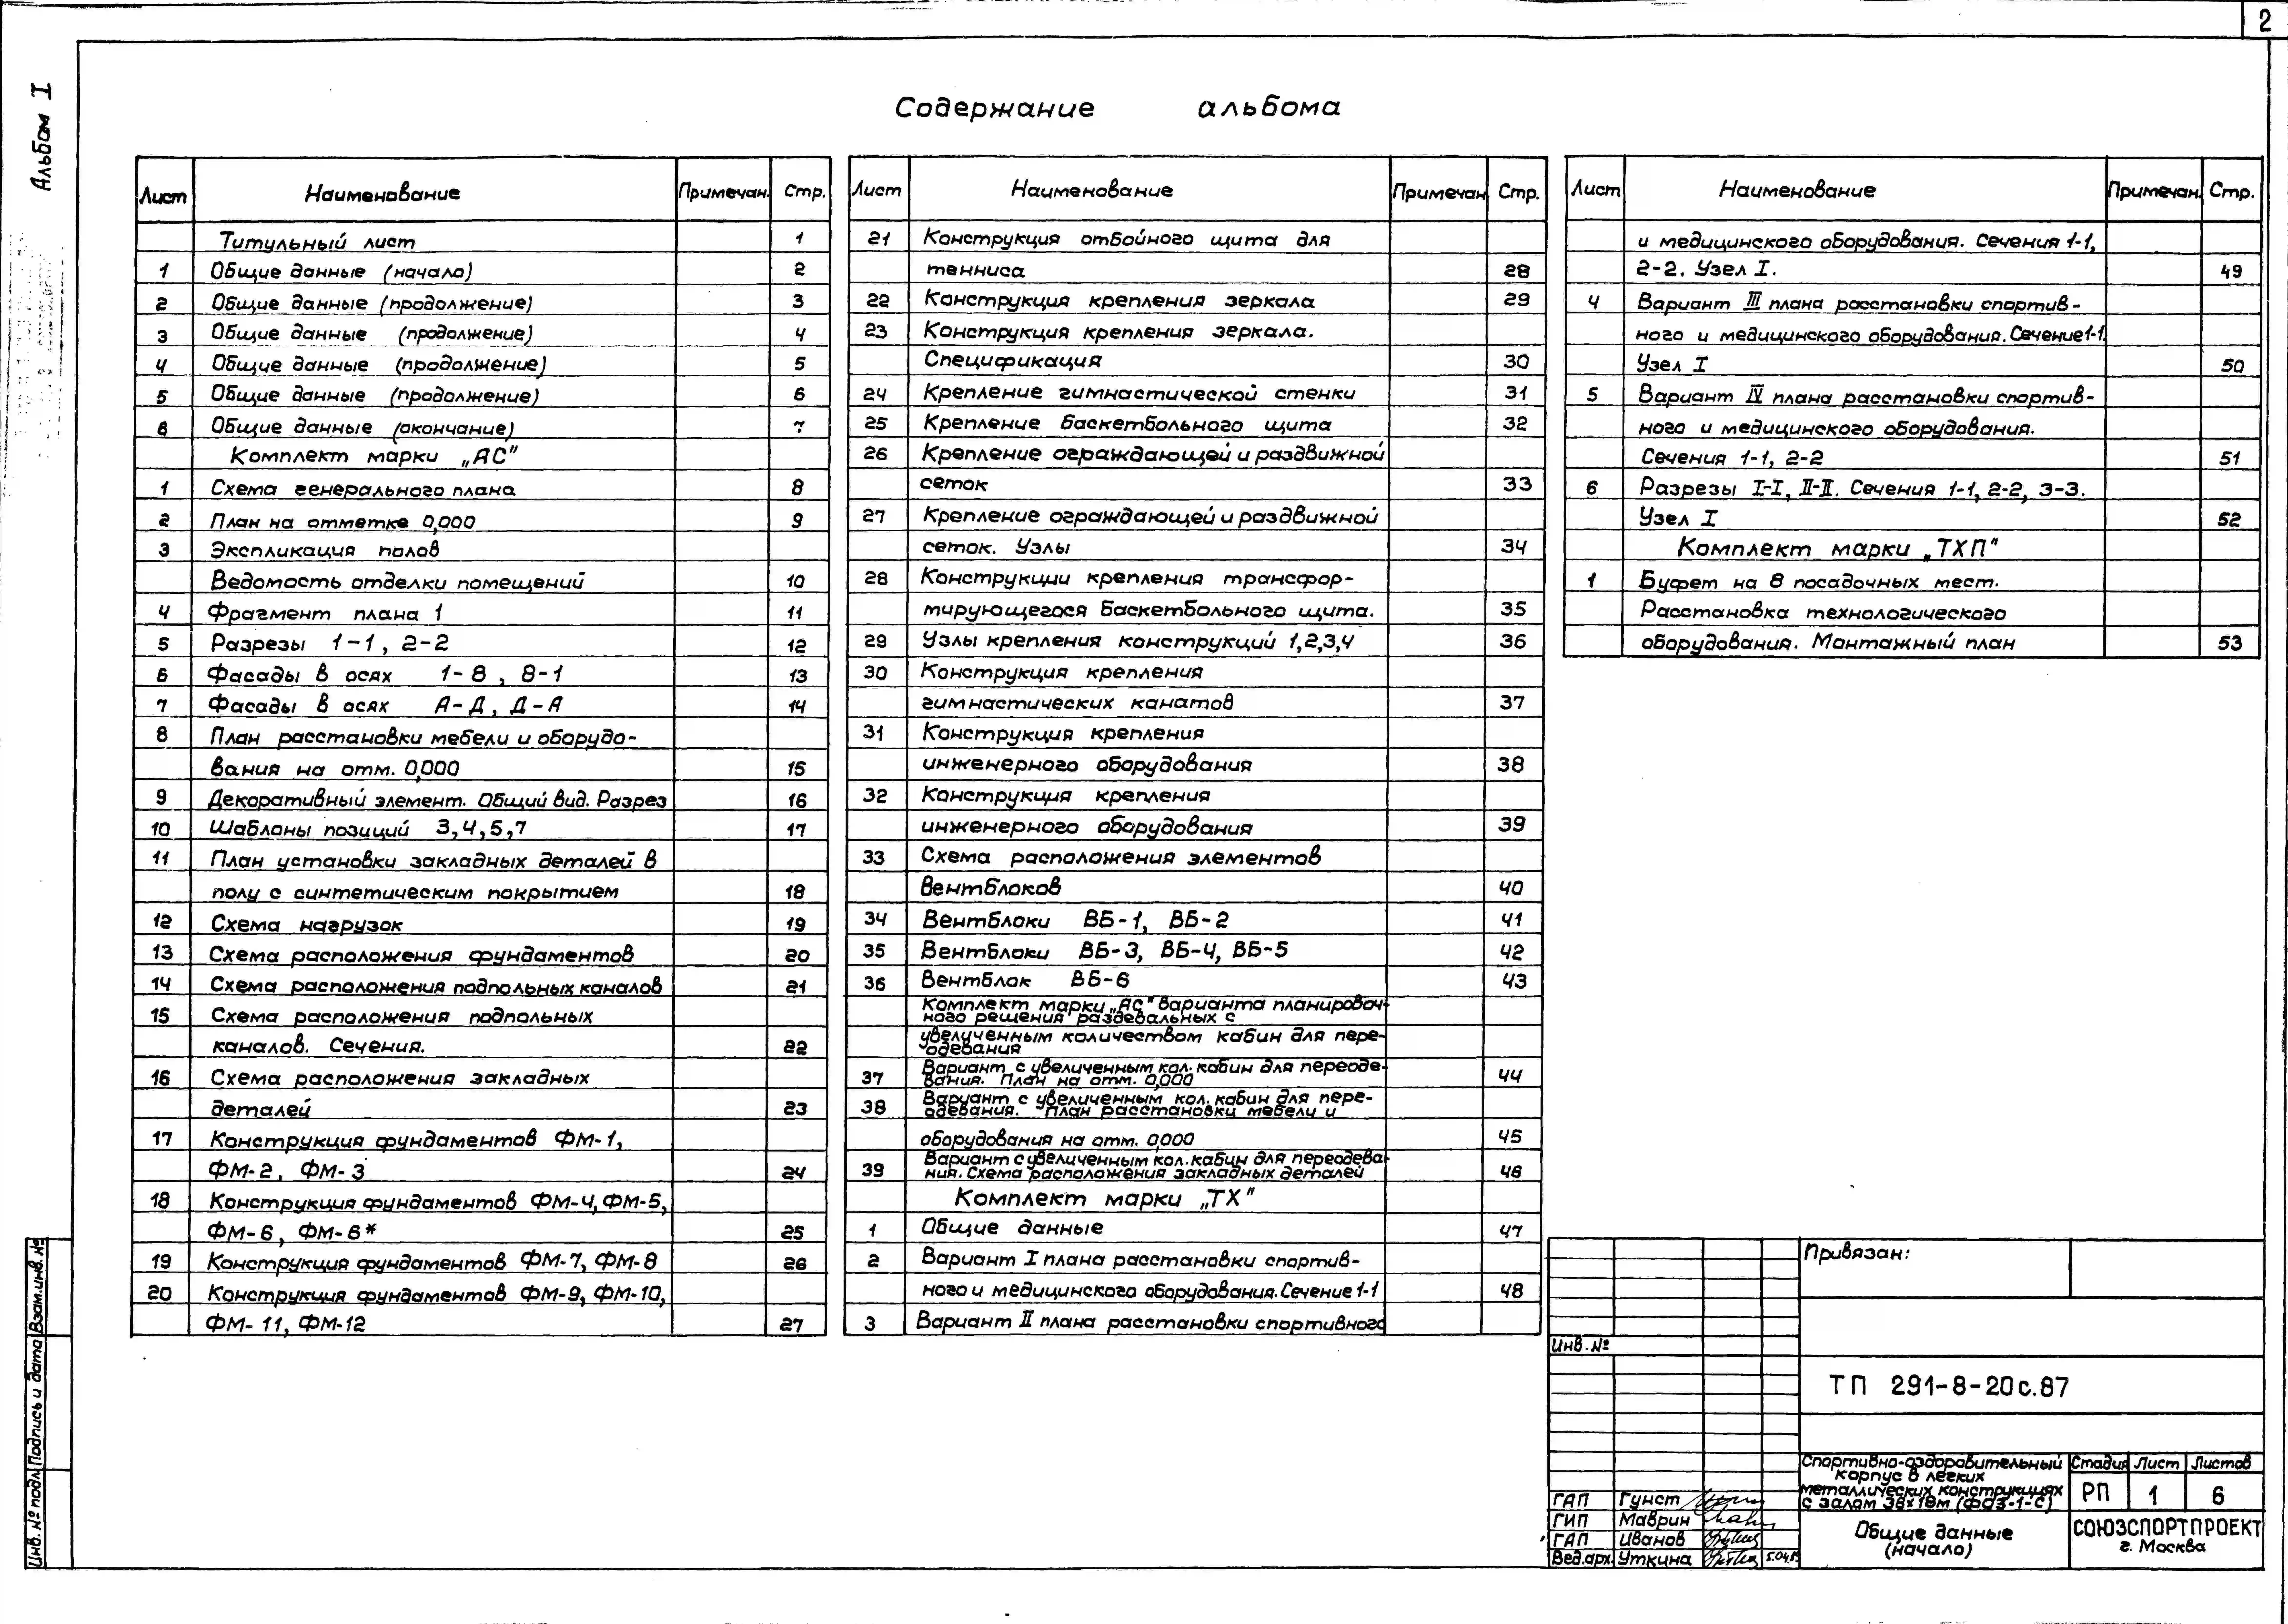 2
Альбом I
Содержание альбома
Лист Наименование Примечан. Стр.
Титульный лист 1
1 Общие данные (начало) 2
2 Общие данные (продолжение) 3
3 Общие данные (продолжение) 4
4 Общие данные (продолжение) 5
5 Общие данные (продолжение) 6
6 Общие данные (окончание) 7
Комплект марки „АС"
1 Схема генерального плана 8
2 План на отметке 0,000 9
3 Экспликация полов
Ведомость отделки помещений 10
4 Фрагмент плана 1 11
5 Разрезы 1-1, 2-2 12
6 Фасады в осях 1-8, 8-1 13
7 Фасады в осях А-Д, Д-А 14
8 План расстановки мебели и оборудо-
вания на отм. 0,000 15
9 Декоративный элемент. Общий вид. Разрез 16
10 Шаблоны позиций 3,4,5,7 17
11 План установки закладных деталей в
полу с синтетическим покрытием 18
12 Схема нагрузок 19
13 Схема расположения фундаментов 20
14 Схема расположения подпольных каналов 21
15 Схема расположения подпольных
каналов. Сечения. 22
16 Схема расположения закладных
деталей 23
17 Конструкция фундаментов ФМ-1,
ФМ-2, ФМ-3 24
18 Конструкция фундаментов ФМ-4, ФМ-5,
ФМ-6, ФМ-6* 25
19 Конструкция фундаментов ФМ-7, ФМ-8 26
20 Конструкция фундаментов ФМ-9, ФМ-10,
ФМ-11, ФМ-12 27
Лист Наименование Примечан Стр.
21 Конструкция отбойного щита для
тенниса 28
22 Конструкция крепления зеркала 29
23 Конструкция крепления зеркала.
Спецификация 30
24 Крепление гимнастической стенки 31
25 Крепление баскетбольного щита 32
26 Крепление ограждающей и раздвижной
сеток 33
27 Крепление ограждающей и раздвижной
сеток. Узлы 34
28 Конструкции крепления трансфор-
мирующегося баскетбольного щита. 35
29 Узлы крепления конструкций 1,2,3,4 36
30 Конструкция крепления
гимнастических канатов 37
31 Конструкция крепления
инженерного оборудования 38
32 Конструкция крепления
инженерного оборудования 39
33 Схема расположения элементов
вентблоков 40
34 Вентблоки ВБ-1, ВБ-2 41
35 Вентблоки ВБ-3, ВБ-4, ВБ-5 42
36 Вентблок ВБ-6 43
Комплект марки „АС" варианта планировоч-
ного решения раздевальных с
увеличенным количеством кабин для пере-
одевания
37 Вариант с увеличенным кол. кабин для переоде-
вания. План на отм. 0,000 44
38 Вариант с увеличенным кол. кабин для пере-
одевания. План расстановки мебели и
оборудования на отм. 0,000 45
39 Вариант с увеличенным кол. кабин для переодева-
ния. Схема расположения закладных деталей 46
Комплект марки „ТХ"
1 Общие данные 47
2 Вариант I плана расстановки спортив-
ного и медицинского оборудования. Сечение 1-1 48
3 Вариант II плана расстановки спортивного
Лист Наименование Примечан. Стр.
и медицинского оборудования. Сечения 1-1,
2-2. Узел I. 49
4 Вариант III плана расстановки спортив-
ного и медицинского оборудования. Сечение 1-1.
Узел I 50
5 Вариант IV плана расстановки спортив-
ного и медицинского оборудования.
Сечения 1-1, 2-2 51
6 Разрезы I-I, II-II. Сечения 1-1, 2-2, 3-3.
Узел I 52
Комплект марки „ТХП"
1 Буфет на 8 посадочных мест.
Расстановка технологического
оборудования. Монтажный план 53
Привязан:
Инв. №
ТП 291-8-20с.87
Спортивно-оздоровительный
корпус в легких
металлических конструкциях
с залом 36х18м (ФОЗ-1-С)
Стадия Лист Листов
РП 1 6
Общие данные
(начало)
СОЮЗСПОРТПРОЕКТ
г. Москва
ГАП Гунст
ГИП Маврин
ГАП Иванов
Вед.арх. Уткина
Инв. № подл. Подпись и дата Взам.инв. №